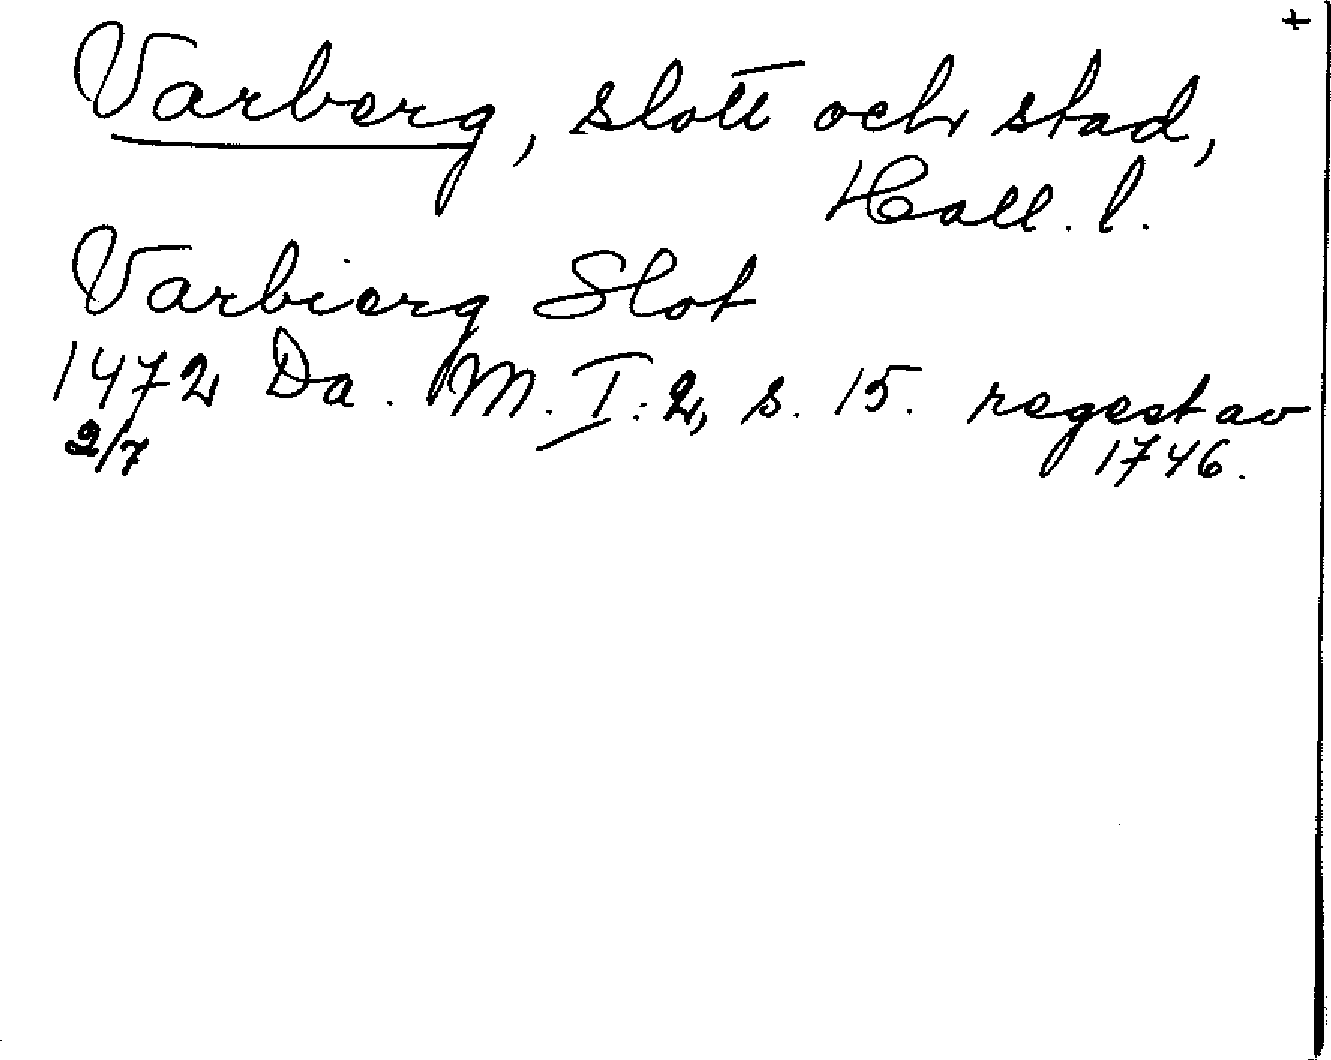 +
Varberg, slott och stad,
Hall. l.
Varbierg Slot
1472 Da. M. I:2, s. 15. regest av
2/7 1746.